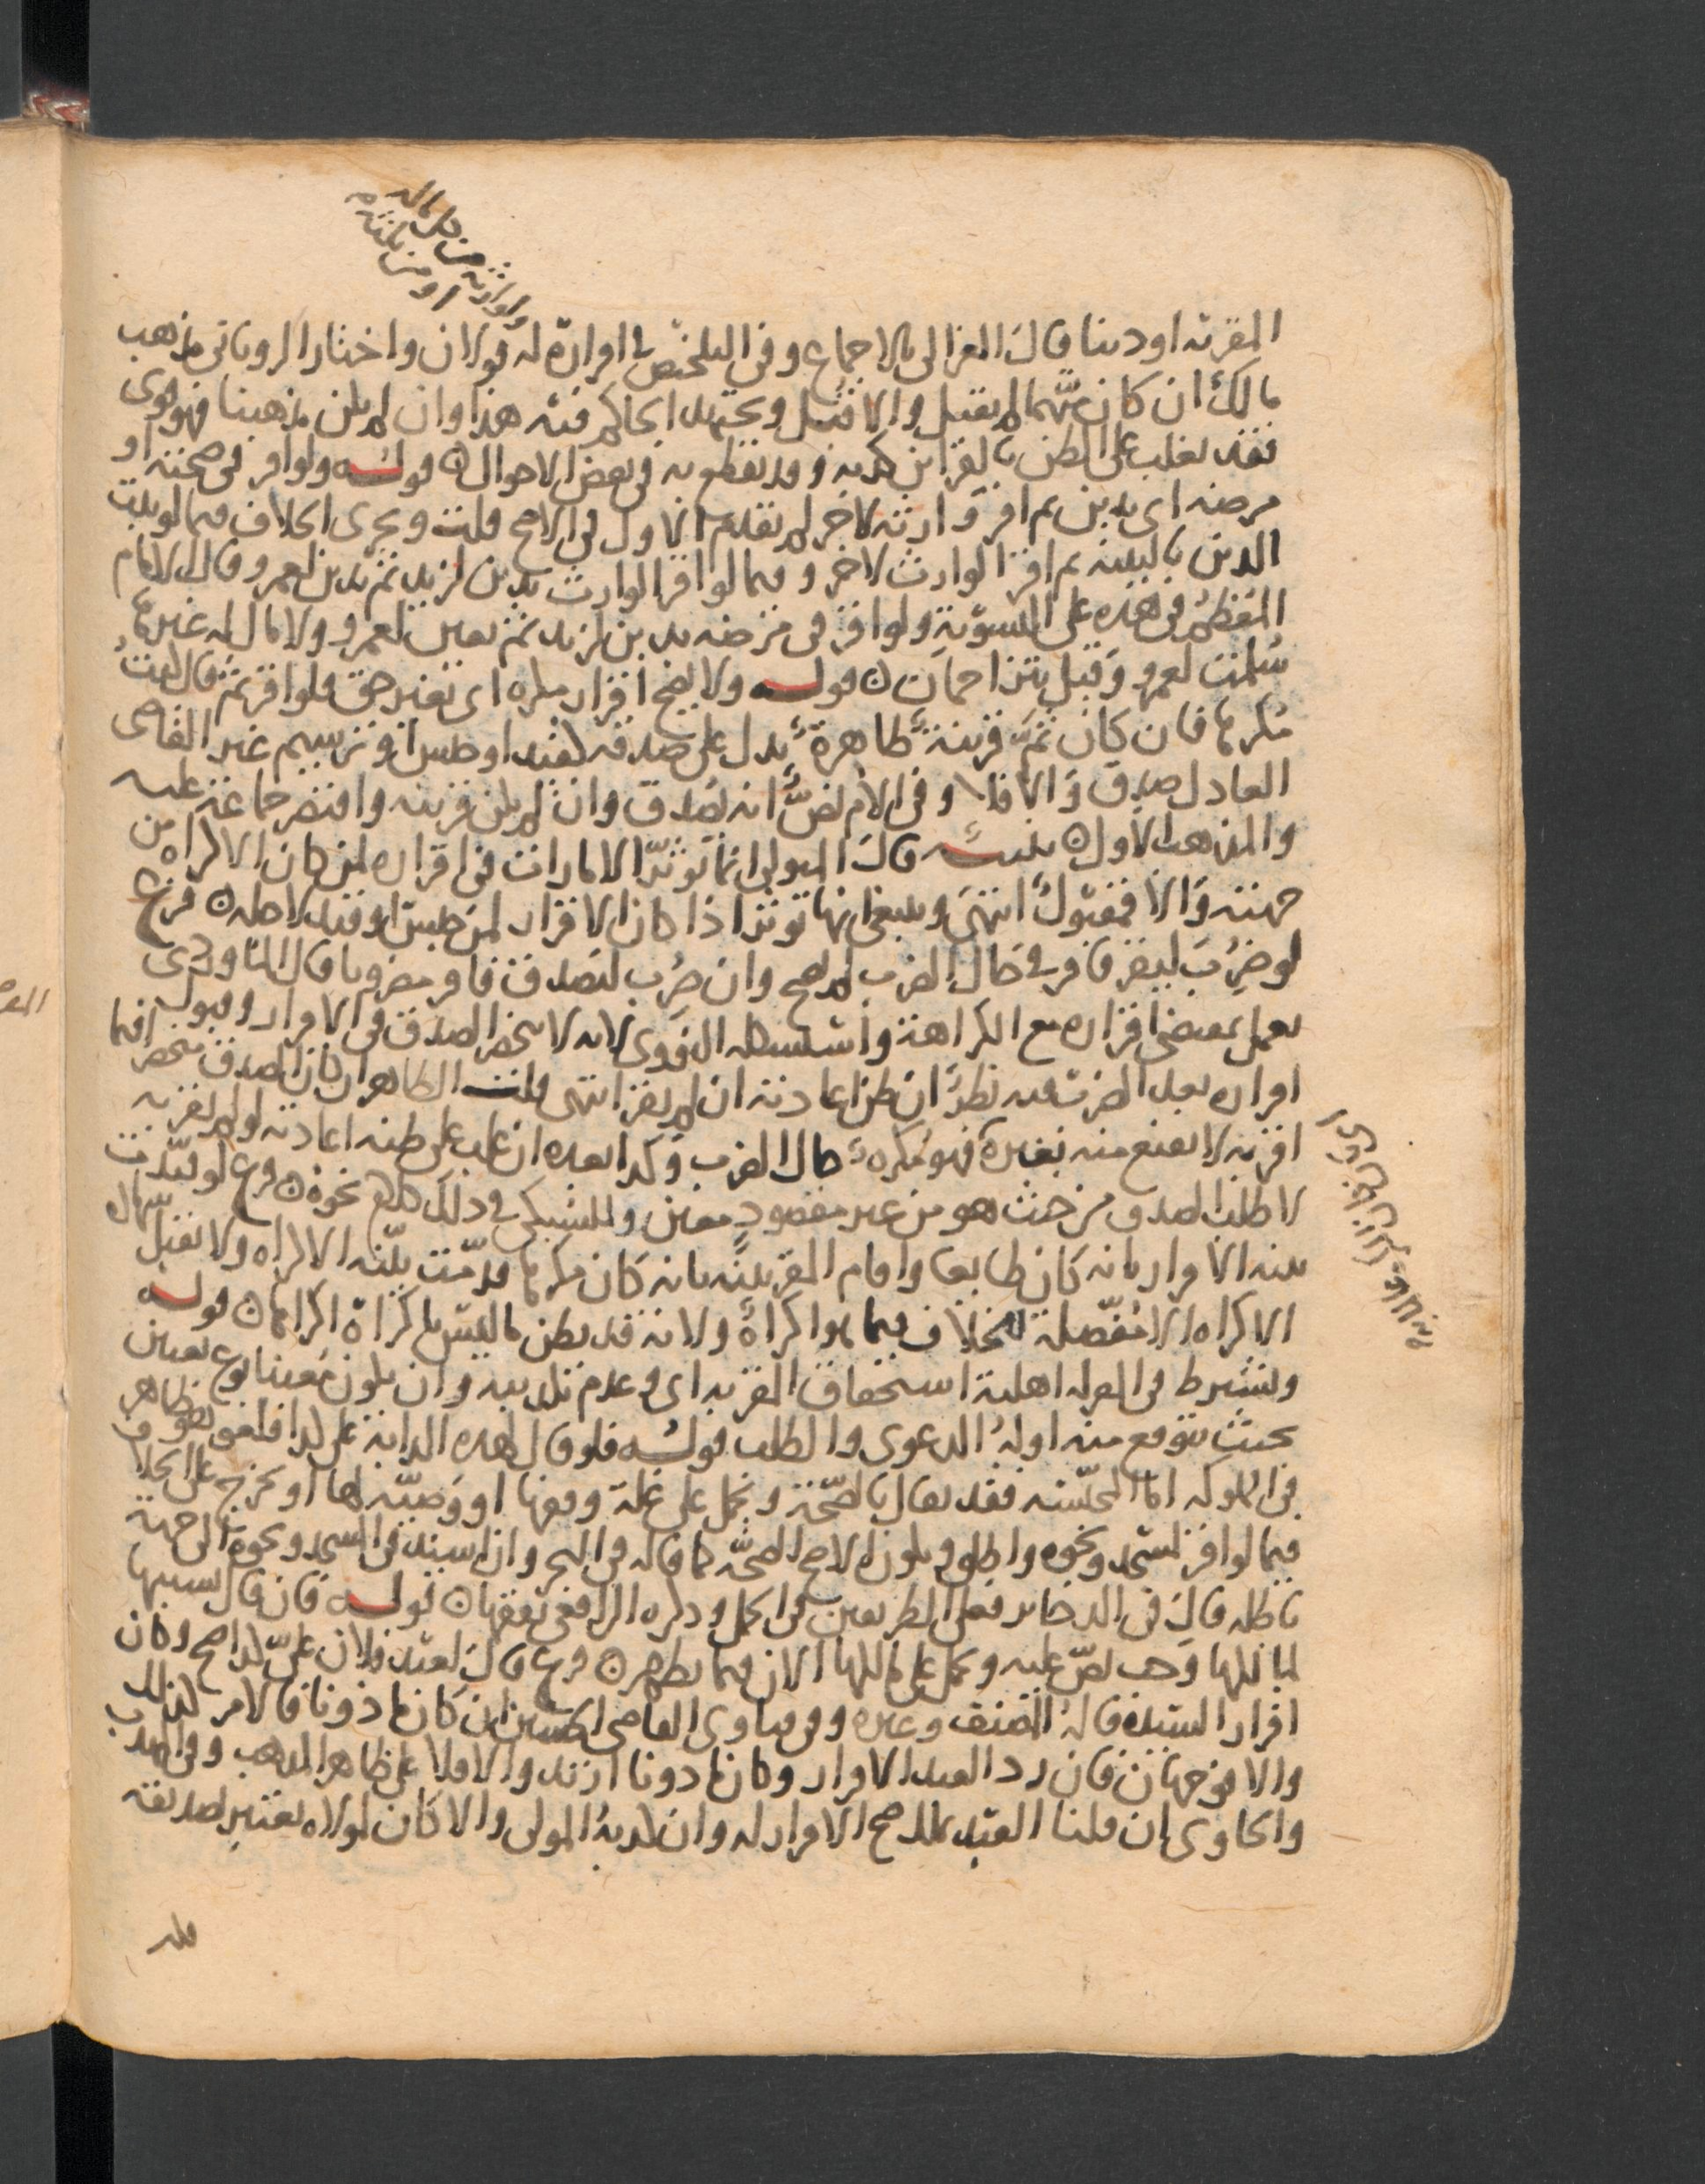 ولوارثه من كل ماله
او من ثلثه
المقر به او دينا قال الغزالى بالاجماع وفى التلخيص فى اقراره له قولان واختار الرويانى مذهب
مالك ان كان متهما لم يقبل والا قبل ويجتهد الحاكم فيه هذا وان لم يكن مذهبنا فهو قوى
فقد يغلب على الظن بالقراين كذبه وقد يقطع به فى بعض الاحوال قوله ولو اقر فى صحته او
مرضه اى بدين ثم اقر وارثه لاخر لم يقدم الاول فى الاصح قلت ويجرى الخلاف فيما لو ثبت
الدين بالبينه ثم اقر الوارث لاخر وفيما لو اقر الوارث بدين لزيد ثم بدين لعمرو وقال الامام
المعظم فى هذه على التسوية ولو اقر فى مرضه بدين لزيد ثم بعين لعمرو ولا مال له غيرها
سلمت لعمرو وقيل يتزاحمان قوله ولا يصح اقرار مكره اى بغير حق فلو اقر ثم قال كنت
مكرها فان كان ثم قرينة ظاهرة تدل على صدقه كقيد او حبس او ترسيم غير القاضى
العادل صدق والا فلا وفى الام نص انه يصدق وان لم يكن قرينه واقتصر جماعة عليه
والمذهب الاول تنبيه قال المتولى انما تؤثر الامارات فى اقراره لمن كان الاكراه من
جهته والا فمقبول انتهى وينبغى انها تؤثر اذا كان الاقرار لمن حبس او قيد لاجله فرع
لو ضرب ليقر فاقر فى حال الضرب لم يصح وان ضرب ليصدق فاقر مضروبا قال الماوردى
يعمل بمقتضى اقراره مع الكراهة واستشكله النووى لانه لا ينحصر الصدق فى الاقرار وقبول
اقراره بعد الضرب فيه نظر ان ظن اعادته ان لم يقر انتهى قلت الظاهر ان كان الصدق منحصرا فيما
اقر به لا يقنع منه بغيره فهو مكره حال الضرب وكذا بعده ان غلب على ظنه اعادته لو لم يقر به
لا طلب الصدق من حيث هو من غير مقصود معين وللسبكى فى ذلك كلام نحوه فرع لو قيدت
بينه الاقرار بانه كان طايعا واقام المقر بينة بانه كان مكرها قدمت بينه الاكراه ولا تقبل شهاده
الاكراه الا مفصلة للخلاف فيما هو اكراه ولانه قد يظن ما ليس باكراه اكراها قوله
ويشترط فى المقر له اهلية استحقاق المقر به اى وعدم تكذيبه وان يكون معينا نوع تعيين
بحيث يتوقع منه او له الدعوى والطلب قوله فلو قال لهذه الدابة على كذا فلغو ظاهر
فى المملوكه اما المحبسة فقد يقال بالصحة ويحمل على غلة وقفها او وصية لها او يخرج على الخلاف
فيما لو اقر لمسجد ونحوه واطلق ويكون الاصح الصحة كما قاله فى البحر وان اسند فى المسجد ونحوه الى جهة
باطله قال فى الذخاير فعلى الطريقين فى الحمل وذكره الرافعى تفقها قوله فان قال بسببها
لمالكها وجب نص عليه ويحمل على مالكها الان فيما يظهر فرع قال لعبد فلان على كذا صح وكان
اقرار السيده قاله المصنف وغيره وفى فتاوى القاضى الحسين ان كان ماذونا فالامر كذلك
والا فوجهان فان رد العبد الاقرار وكان ماذونا ارتد والا فلا على ظاهر المذهب وفى المهذب
والحاوى ان قلنا العبد يملك صح الاقرار له وان كذبه المولى والا كان لمولاه يعتبر تصديقه